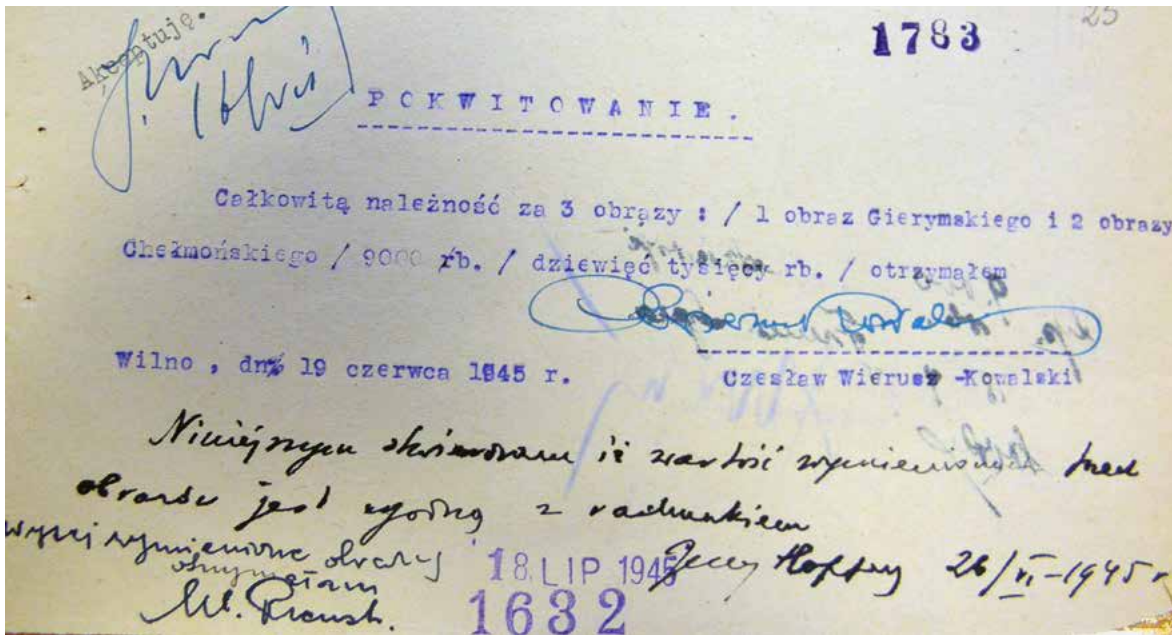 25
1783
Akceptuję.
POKWITOWANIE.
Całkowitą należność za 3 obrązy : / 1 obraz Gierymskiego i 2 obrazy
Chełmońskiego / 9000 rb. / dziewięć tysięcy rb. / otrzymałem
Wilno , dn% 19 czerwca 1945 r.
Czesław Wierusz -Kowalski
Niniejszym stwierdzam iż wartość wymienionych trzech
obrazów jest zgodną z rachunkiem
wyżej wymienione obrazy
otrzymałam
18 LIP 1945
Jerzy Hoppen 26/VI-1945 r.
1632